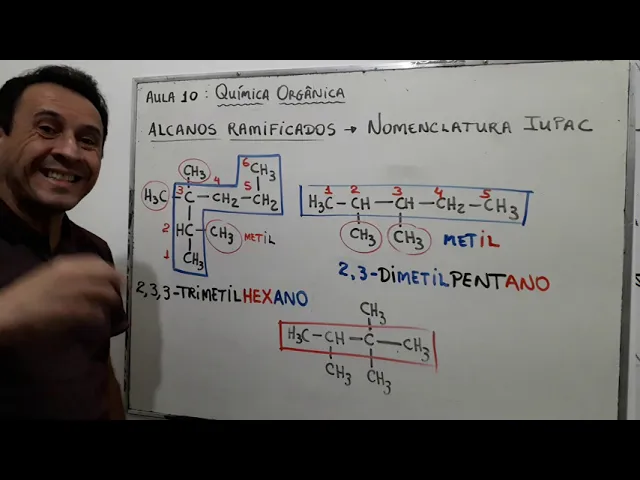 AULA 10 : QUÍMICA ORGÂNICA
ALCANOS RAMIFICADOS → NOMENCLATURA IUPAC
6 CH₃
CH₃ 4 5
H₃C - 3 C - CH₂ - CH₂
2 HC - CH₃ METIL
1 CH₃
2,3,3-TRIMETILHEXANO
1 2 3 4 5
H₃C - CH - CH - CH₂ - CH₃
CH₃ CH₃ METIL
2,3-DIMETILPENTANO
CH₃
H₃C - CH - C - CH₃
CH₃ CH₃